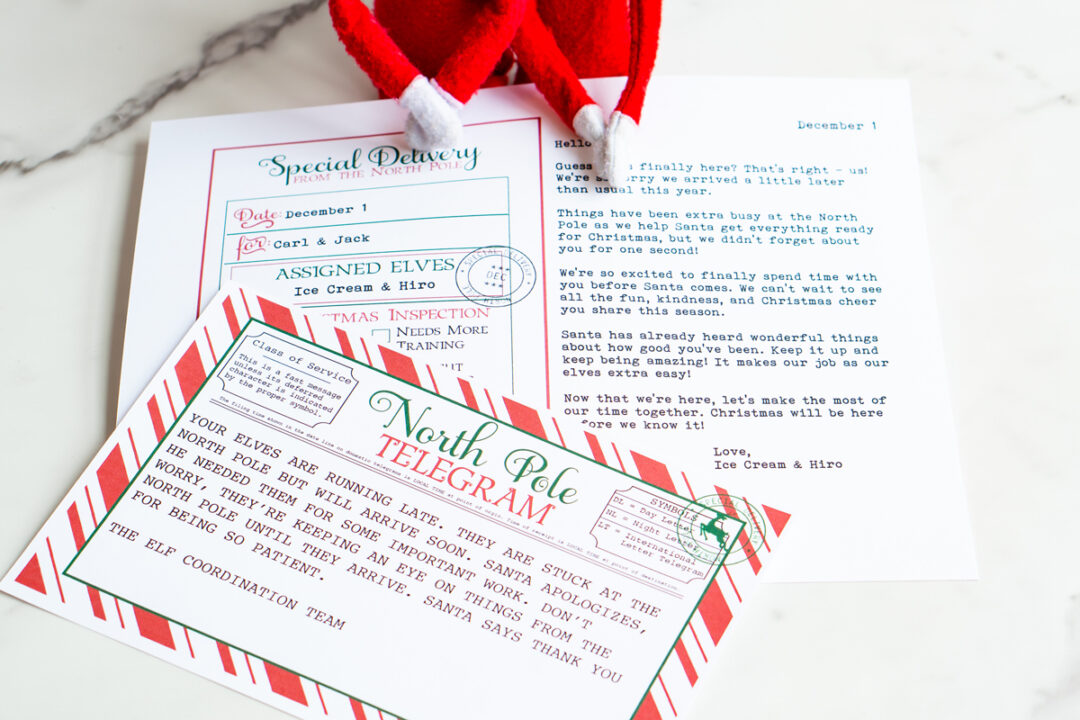 Special Delivery
FROM THE NORTH POLE
Date: December 1
for: Carl & Jack
ASSIGNED ELVES
Ice Cream & Hiro
SPECIAL DELIVERY
DEC
INSPECTION
NEEDS MORE
TRAINING
December 1
Hello
Guess finally here? That's right - us!
We're sorry we arrived a little later
than usual this year.
Things have been extra busy at the North
Pole as we help Santa get everything ready
for Christmas, but we didn't forget about
you for one second!
We're so excited to finally spend time with
you before Santa comes. We can't wait to see
all the fun, kindness, and Christmas cheer
you share this season.
Santa has already heard wonderful things
about how good you've been. Keep it up and
keep being amazing! It makes our job as our
elves extra easy!
Now that we're here, let's make the most of
our time together. Christmas will be here
we know it!
Love,
Ice Cream & Hiro
Class of Service
This is a fast message
unless its deferred
character is indicated
by the proper symbol.
North Pole
TELEGRAM
SYMBOLS
DL = Day Letter
NL = Night Letter
LT = International
Letter Telegram
The filing time shown in the date line on domestic telegrams is LOCAL TIME at point of origin. Time of receipt is LOCAL TIME at point of destination
YOUR ELVES ARE RUNNING LATE. THEY ARE STUCK AT THE
NORTH POLE BUT WILL ARRIVE SOON. SANTA APOLOGIZES,
HE NEEDED THEM FOR SOME IMPORTANT WORK. DON'T
WORRY, THEY'RE KEEPING AN EYE ON THINGS FROM THE
NORTH POLE UNTIL THEY ARRIVE. SANTA SAYS THANK YOU
FOR BEING SO PATIENT.
THE ELF COORDINATION TEAM